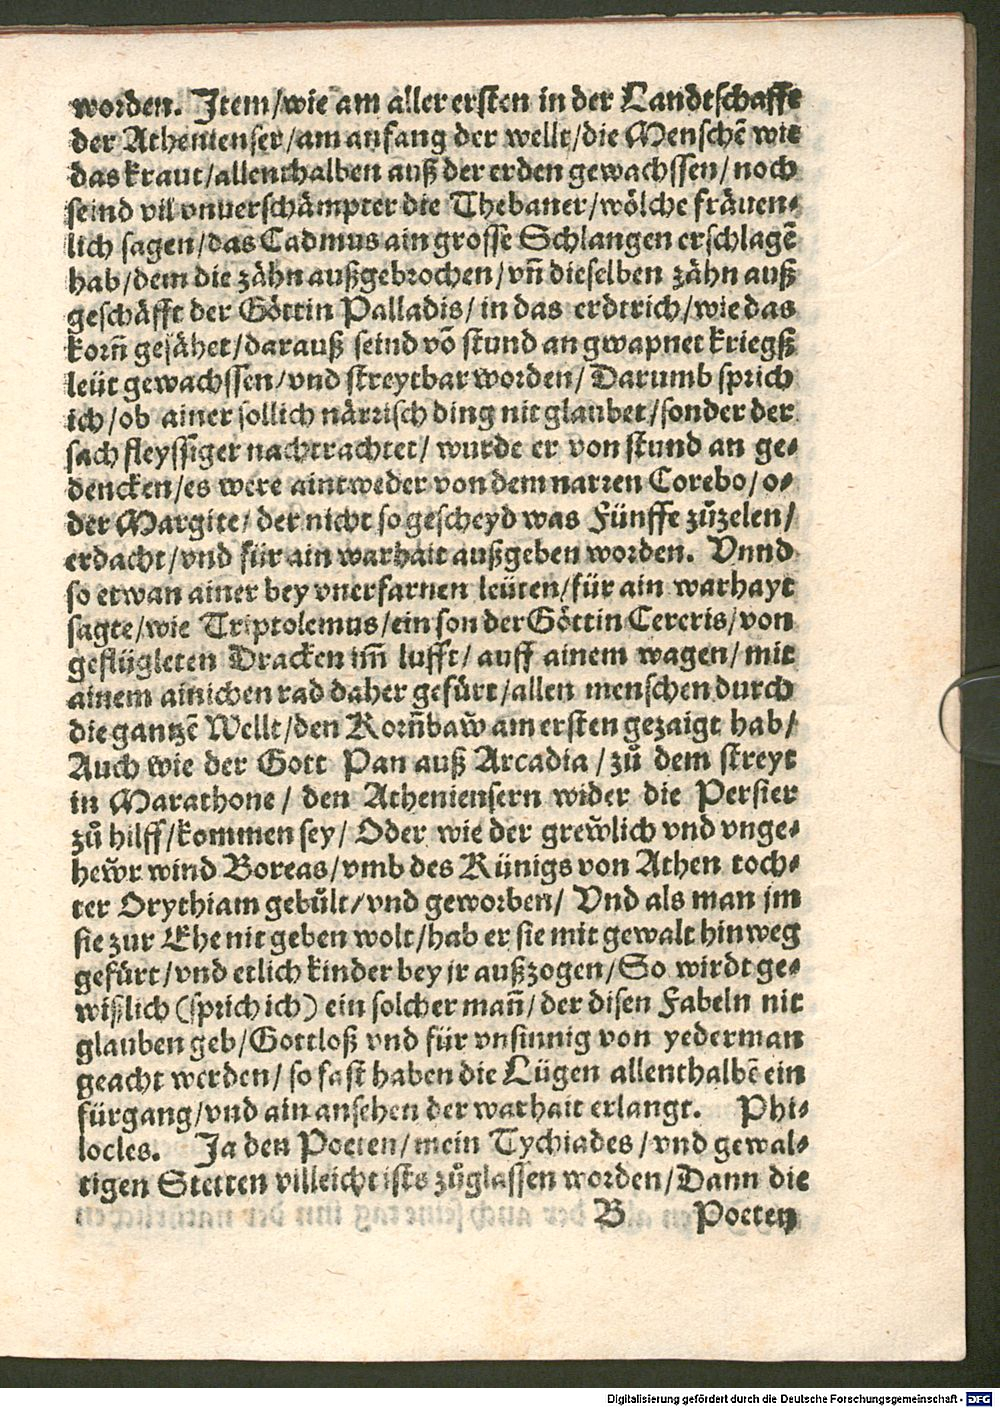 worden. Item/wie am aller ersten in der Landtschafft
der Athenienser/am anfang der wellt/die Menschē wie
das kraut/allenthalben auß der erden gewachssen/noch
seind vil vnuerschämpter die Thebaner/wölche fräuen-
lich sagen/das Cadmus ain grosse Schlangen erschlagē
hab/dem die zähn außgebrochen/vñ dieselben zähn auß
geschäfft der Göttin Palladis/in das erdtrich/wie das
korñ gesähet/darauß seind vō stund an gwapnet kriegß
leüt gewachssen/vnd streytbar worden/Darumb sprich
ich/ob ainer sollich närrisch ding nit glaubet/sonder der
sach fleyssiger nachtrachtet/ wurde er von stund an ge-
dencken/es were aintweder von dem narren Corebo/o-
der Margite/der nicht so gescheyd was Fünffe zůzelen/
erdacht/vnd für ain warhait außgeben worden. Vnnd
so etwan ainer bey vnerfarnen leüten/für ain warhayt
sagte/wie Triptolemus/ein son der Göttin Cereris/von
geflügleten Dracken im̃ lufft/auff ainem wagen/mit
ainem ainichen rad daher gefürt/allen menschen durch
die gantzē Wellt/den Korñbaw̌ am ersten gezaigt hab/
Auch wie der Gott Pan auß Arcadia/zů dem streyt
in Marathone/ den Atheniensern wider die Persier
zů hilff/kommen sey/ Oder wie der grew̌lich vnd vnge-
hew̌r wind Boreas/vmb des Künigs von Athen toch-
ter Orythiam gebůlt/vnd geworben/ Vnd als man jm
sie zur Ehe nit geben wolt/hab er sie mit gewalt hinweg
gefürt/vnd etlich kinder bey jr außzogen/So wirdt ge-
wißlich (sprich ich) ein solcher mañ/der disen Fabeln nit
glauben geb/Gottloß vnd für vnsinnig von yederman
geacht werden/so fast haben die Lügen allenthalbē ein
fürgang/vnd ain ansehen der warhait erlangt. Phi-
locles. Ja den Poeten/mein Tychiades/vnd gewal-
tigen Stetten villeicht ists zůglassen worden/Dann die
B Poeten
Digitalisierung gefördert durch die Deutsche Forschungsgemeinschaft - DFG